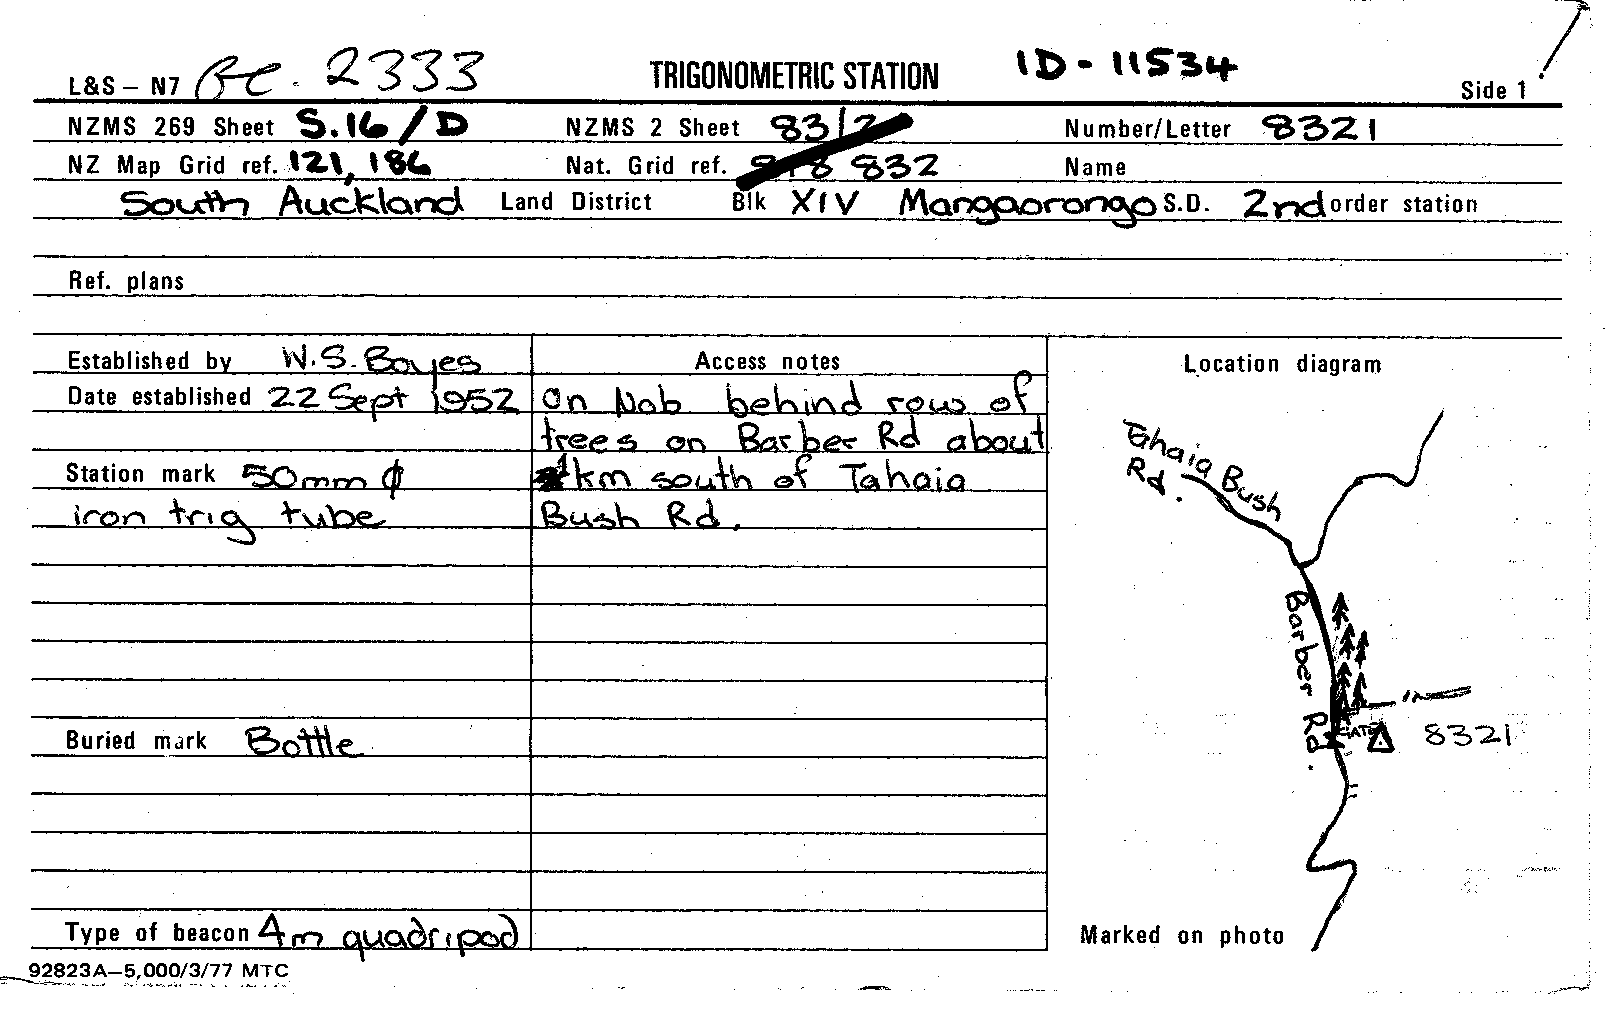 L&S – N7 2333 TRIGONOMETRIC STATION ID - 11534 Side 1
NZMS 269 Sheet S.16/D NZMS 2 Sheet 83/ Number/Letter 8321
NZ Map Grid ref. 121, 186 Nat. Grid ref. 832 Name
South Auckland Land District Blk XIV Mangaorongo S.D. 2nd order station
Ref. plans
Established by W.S. Boyes
Date established 22 Sept 1952
Station mark 50mm ϕ
iron trig tube
Buried mark Bottle
Type of beacon 4m quadripod
Access notes
On Nob behind row of
trees on Barber Rd about
1km south of Tahaia
Bush Rd.
Location diagram
Tahaia Bush
Rd.
Barber Rd.
GATE
8321
Marked on photo
92823A–5,000/3/77 MTC